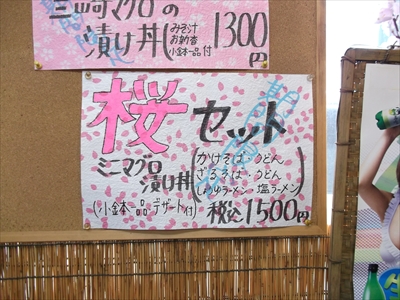 三崎マグロの
漬け丼
(みそ汁
お新香
小鉢一品付
1300円
桜セット
ミニマグロ
漬け丼
(かけそば・うどん
ざるそば・うどん
しょうゆラーメン・塩ラーメン)
(小鉢一品・デザート付)
税込1500円